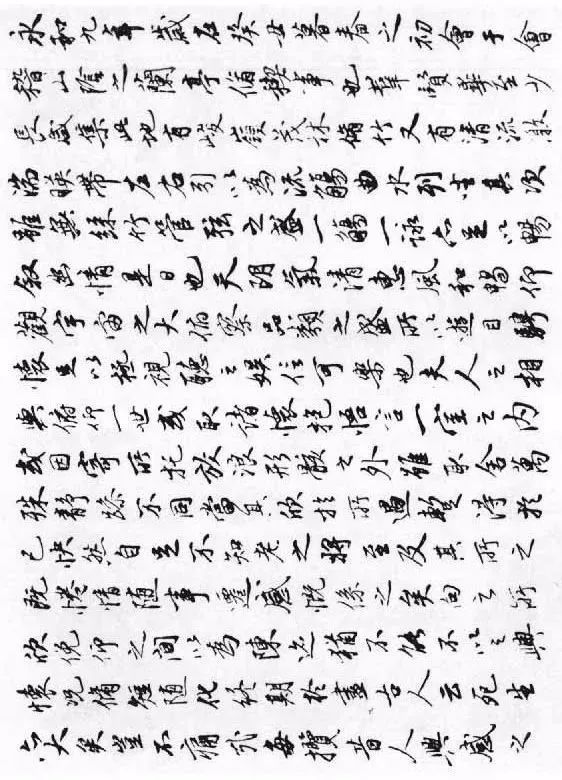 永和九年歲在癸丑暮春之初會于會
稽山陰之蘭亭脩禊事也羣賢畢至少
長咸集此地有峻嶺茂林脩竹又有清流激
湍映帶左右引以為流觴曲水列坐其次
雖無絲竹管弦之盛一觴一詠亦足以暢
敘幽情是日也天朗氣清惠風和暢仰
觀宇宙之大俯察品類之盛所以遊目騁
懷足以極視聽之娛信可樂也夫人之相
與俯仰一世或取諸懷抱悟言一室之內
或因寄所托放浪形骸之外雖取舍萬
殊靜躁不同當其欣於所遇暫得於
己快然自足不知老之將至及其所之
既惓情隨事遷感慨係之矣向之所
欣俛仰之間以為陳迹猶不能不以之興
懷況脩短隨化終期於盡古人云死生
亦大矣豈不痛哉每攬昔人興感之